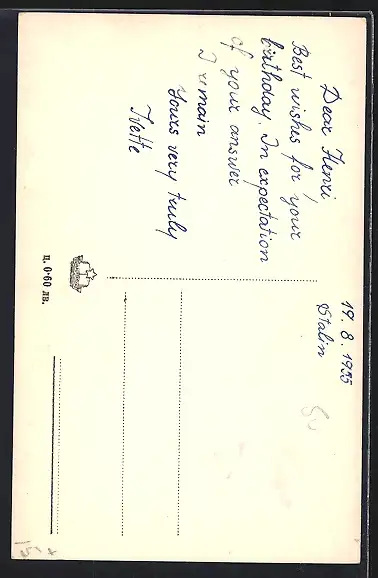 Dear Henri,
Best wishes for your
birthday. In expectation
of your answer
I remain
Yours very truly
Ivette
19. 8. 1955
Stalin
ц. 0·60 лв.